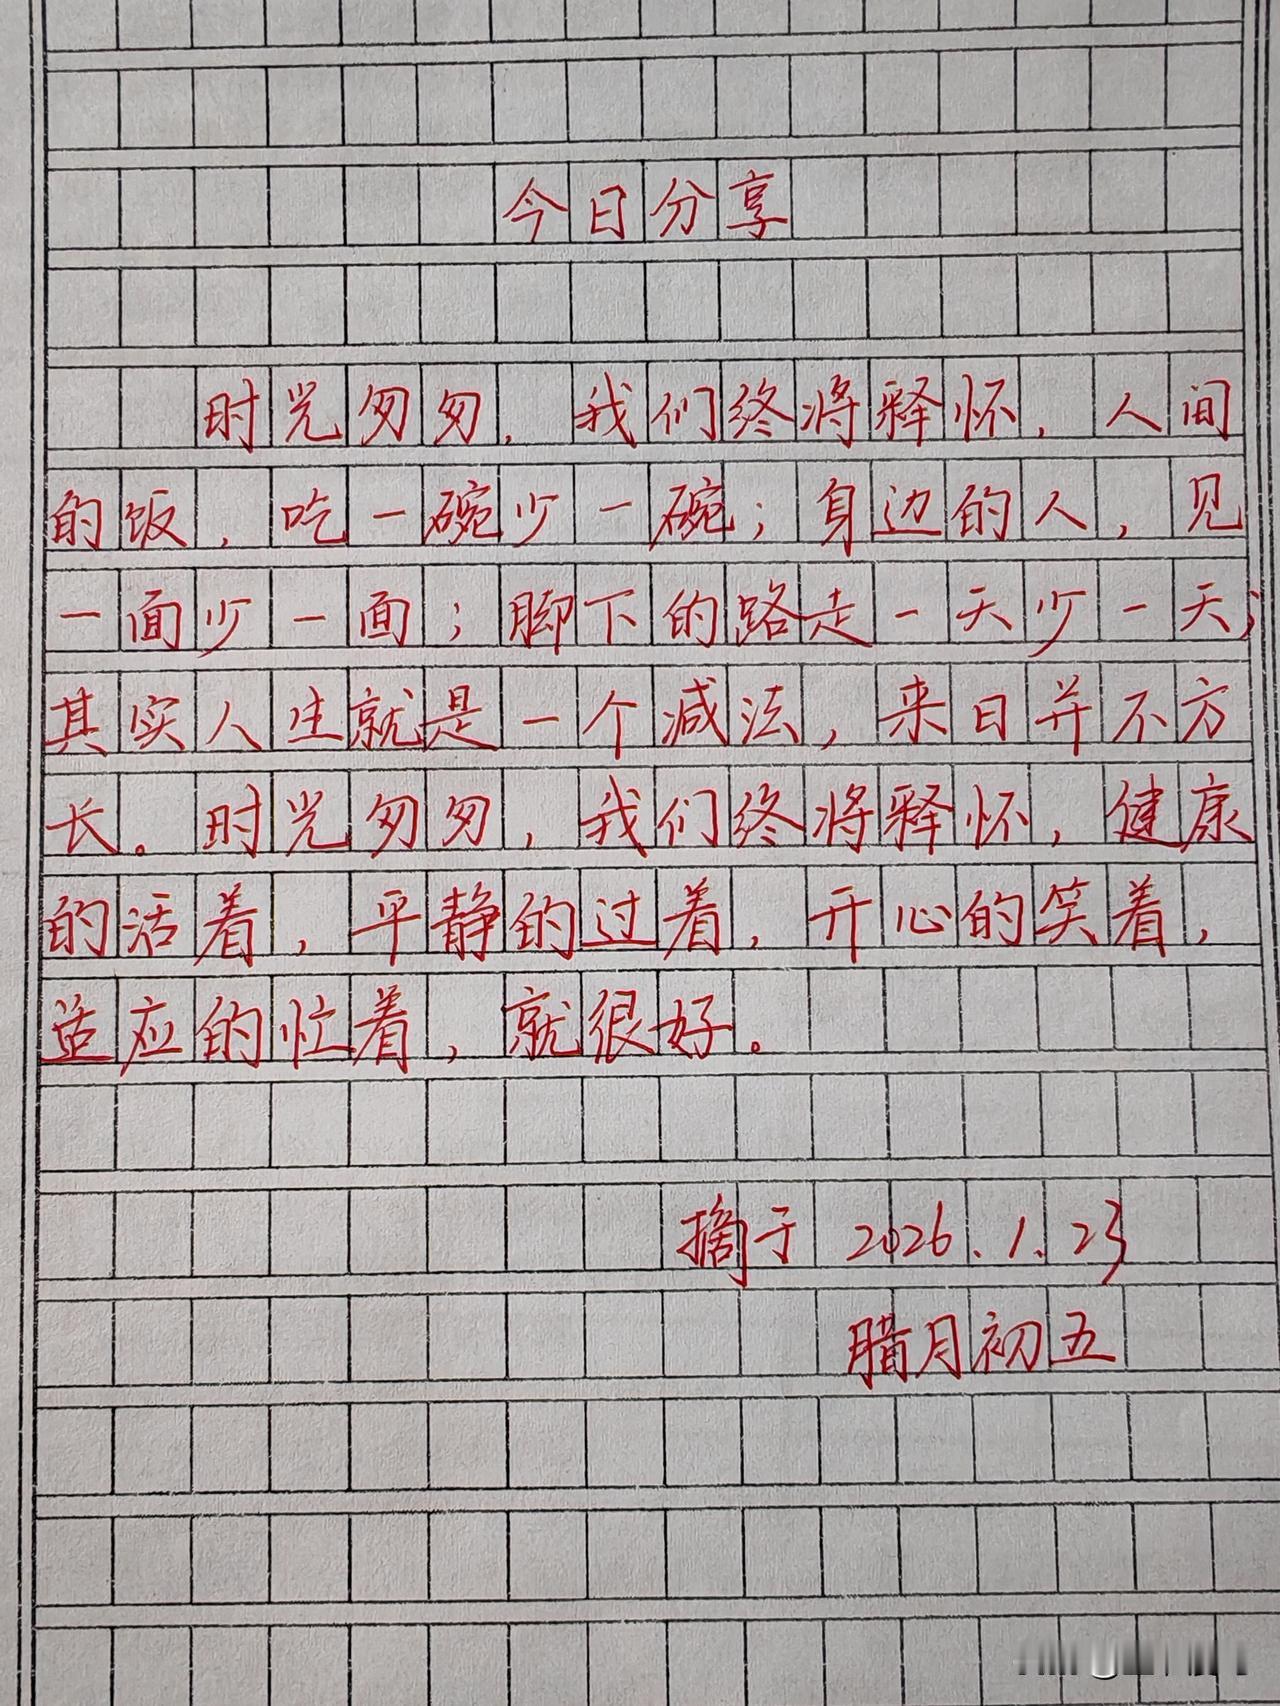 今日分享
时光匆匆，我们终将释怀，人间
的饭，吃一碗少一碗；身边的人，见
一面少一面；脚下的路走一天少一天；
其实人生就是一个减法，来日并不方
长。时光匆匆，我们终将释怀，健康
的活着，平静的过着，开心的笑着，
适应的忙着，就很好。
摘于 2026.1.23
腊月初五